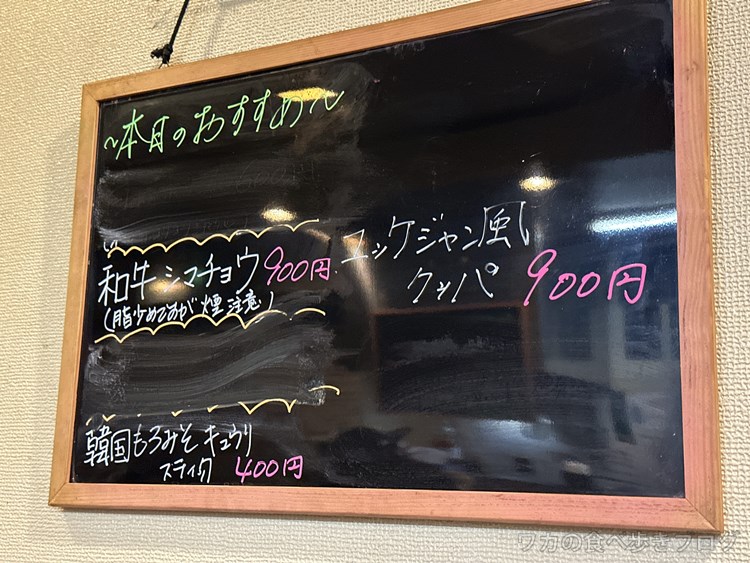 ~本日のおすすめ~
和牛シマチョウ900円
(脂少めですが煙注意)
韓国もろみそキュウリ
スティック 400円
ユッケジャン風
クッパ 900円
ワカの食べ歩きブログ